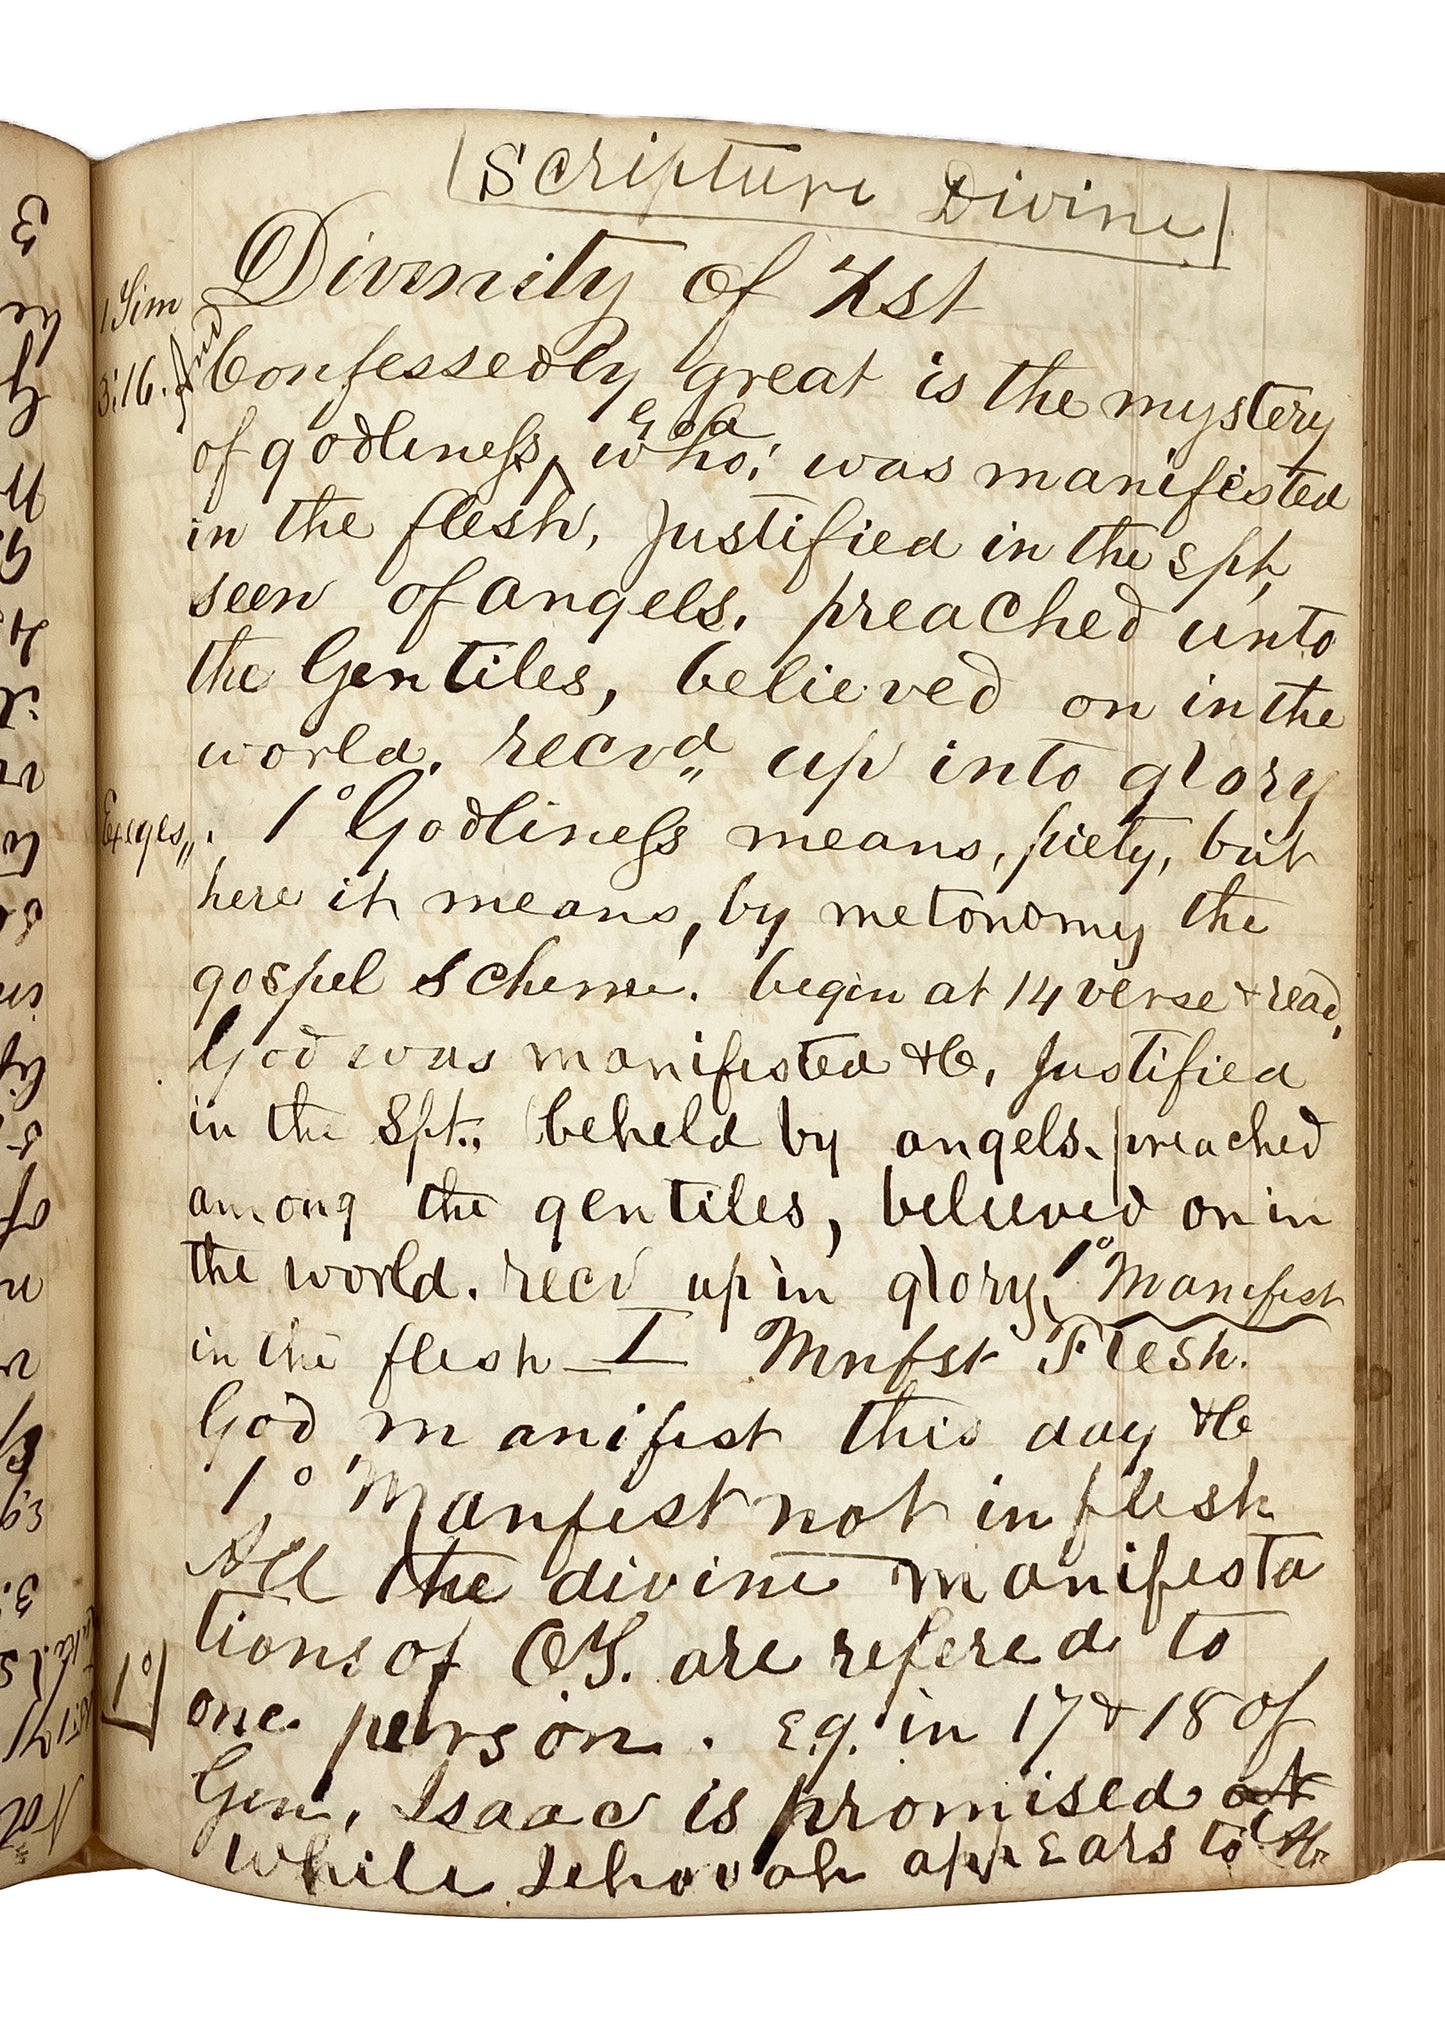 Scripture Divine
Divinity of Xst
1 Tim
3:16. And Confessedly great is the mystery
God
of godliness, who, was manifested
in the flesh, justified in the spt,
seen of angels, preached unto
the Gentiles, believed on in the
world, recvd up into glory
Exeges,,. 1° Godliness means, piety, but
here it means, by metonomy the
gospel scheme. begin at 14 verse & read,
God was manifested &c, justified
in the Spt., beheld by angels, preached
among the gentiles, believed on in
the world. recd up in glory, 1° Manifest
in the flesh — I Mnfst Flesh.
God manifest this day &c
1° Manfest not in flesh
All the divine manifesta
tions of O.T. are refered to
1° one person. E.g. in 17 & 18 of
Gen, Isaac is promised at
while Jehovah appears to